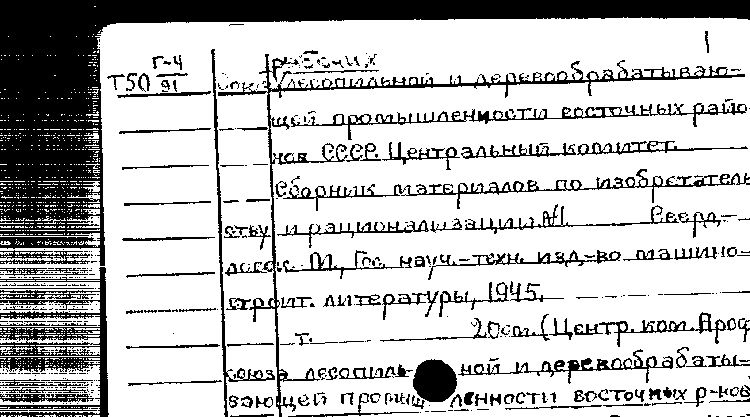 1
Г-4 рабочих
Т50 91 Союз лесопильной и деревообрабатываю-
щей промышленности восточных райо
нов СССР. Центральный комитет.
Сборник материалов по изобретатель
ству и рационализации. №1. Сверд-
ловск. М., Гос. науч.-техн. изд-во машино-
строит. литературы, 1945.
т. 20см. (Центр. ком. Проф
союза лесопиль ной и деревообрабаты-
вающей промыш ленности восточных р-нов